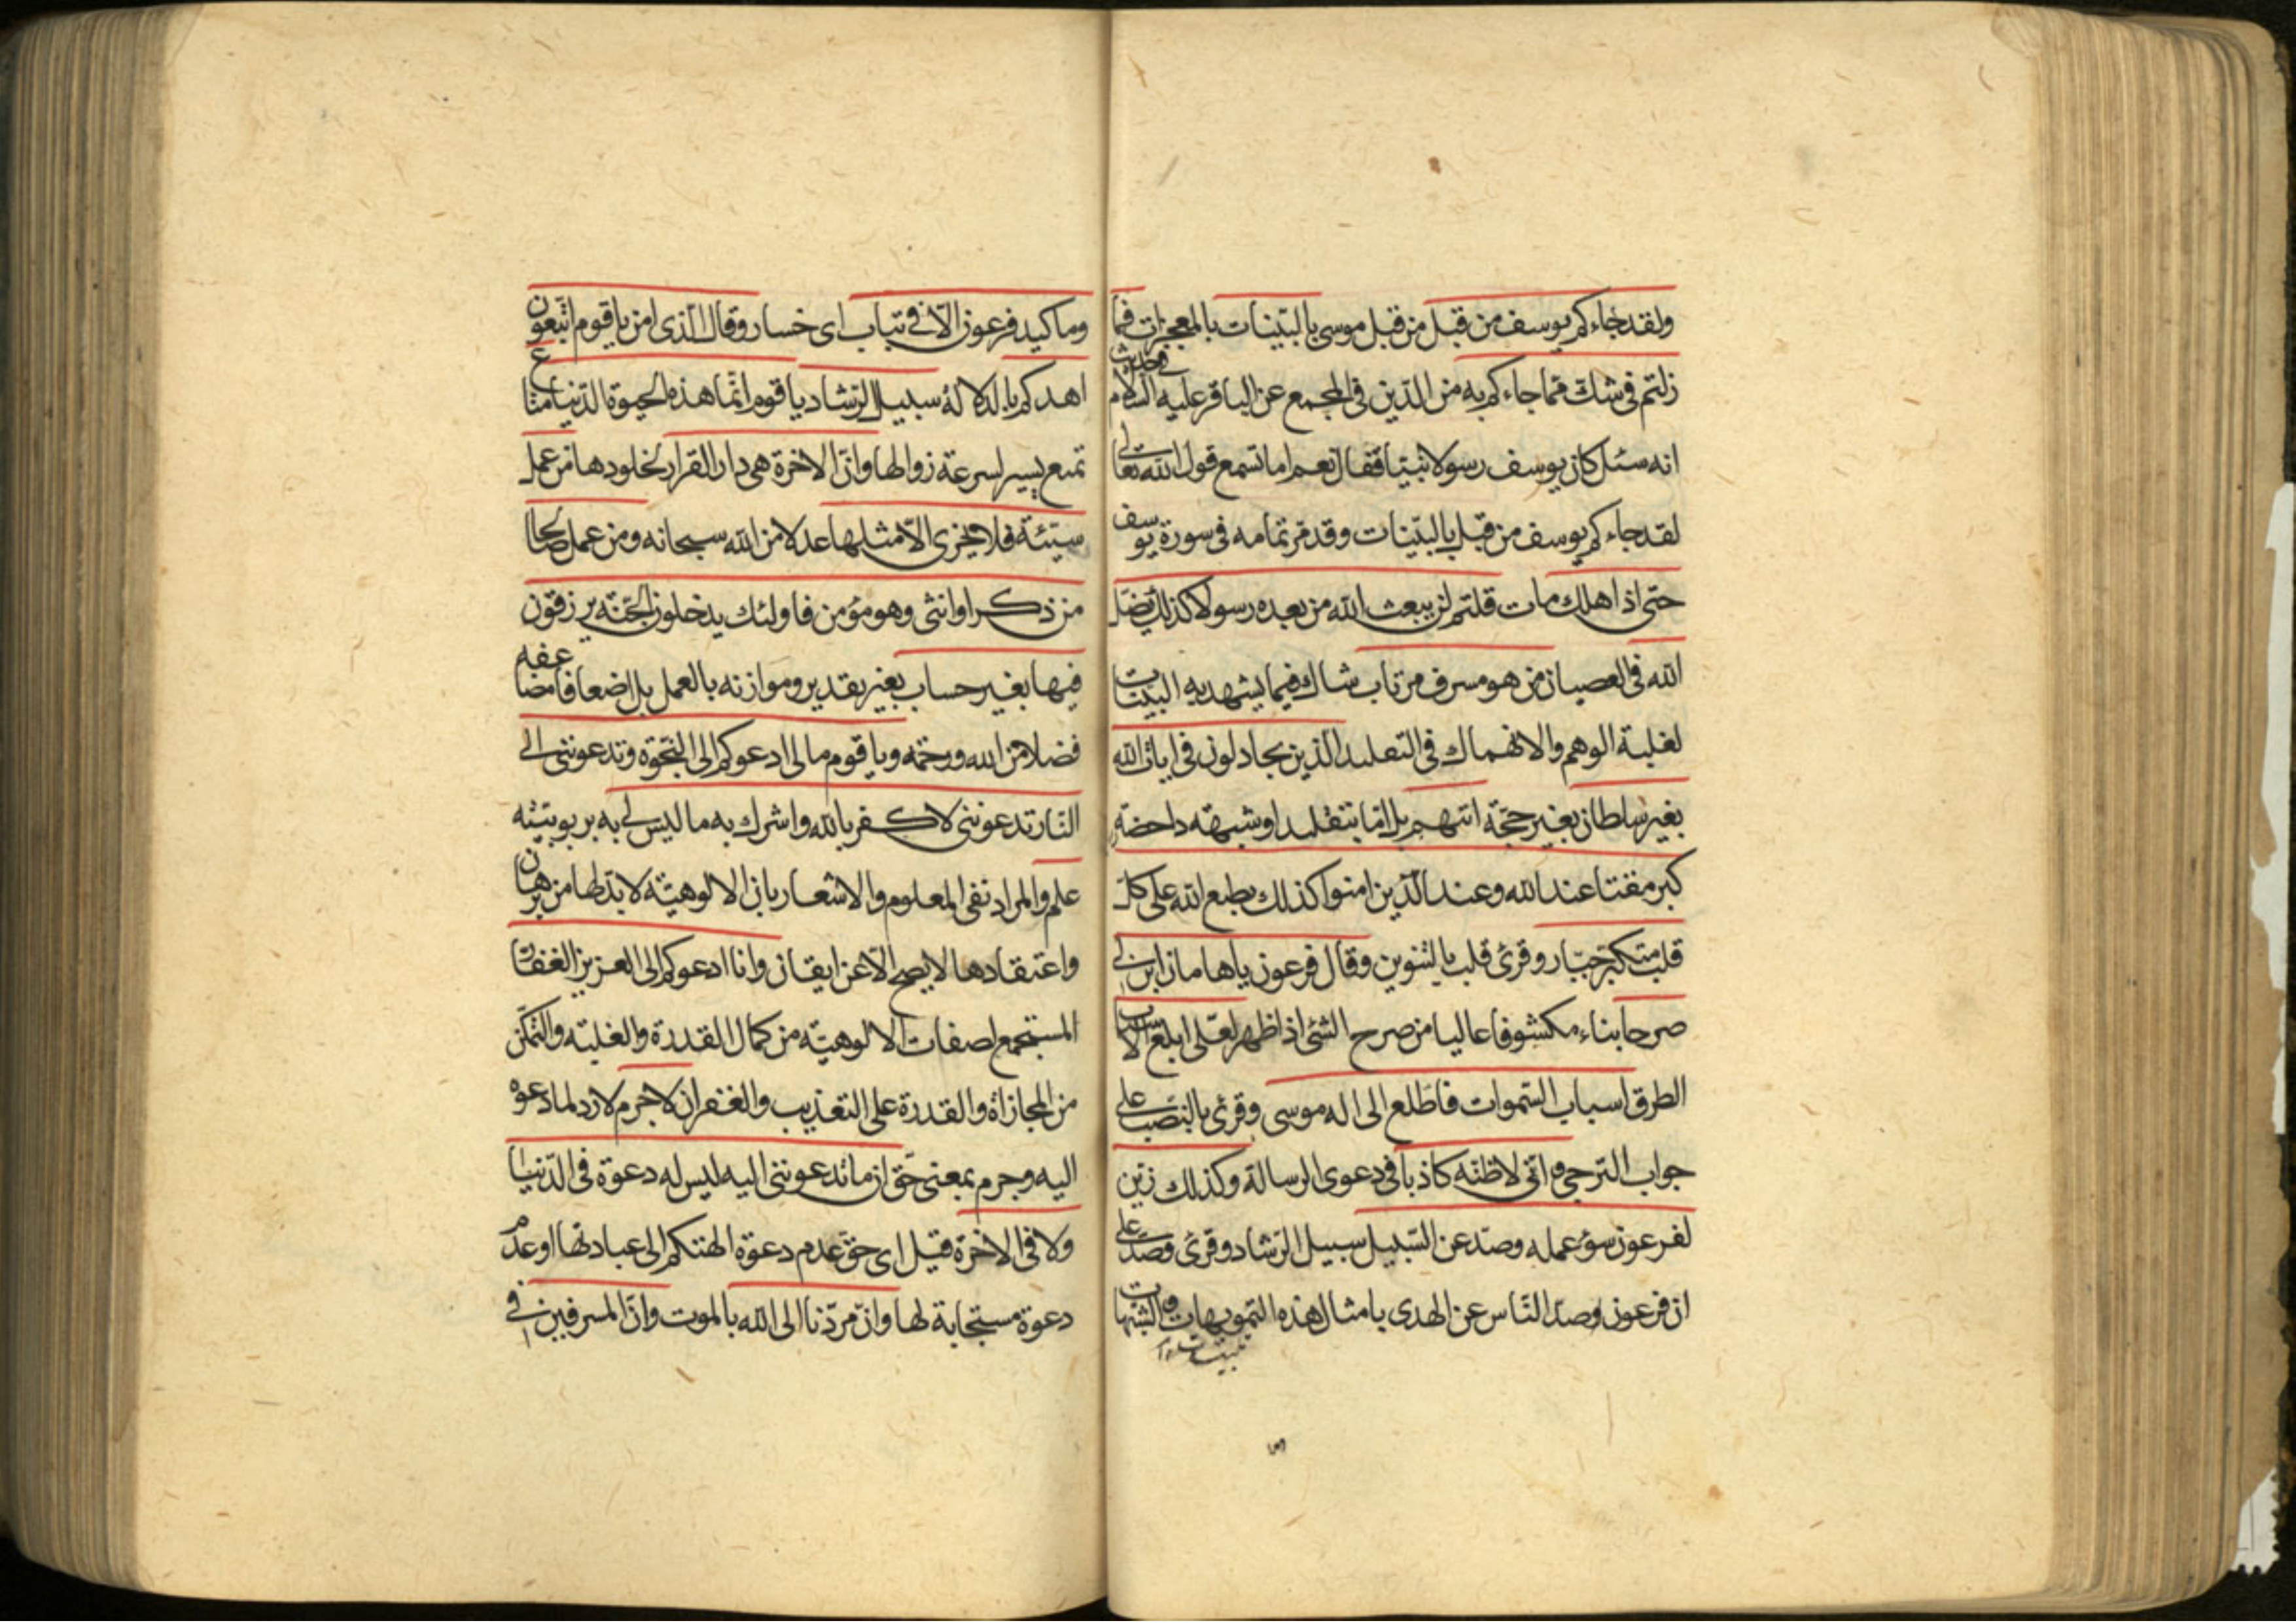 ولقد جاءكم يوسف من قبل من قبل موسى بالبينات بالمعجزات فما
زلتم فى شك مما جاءكم به من الدين فى المجمع عن الباقر عليه السلام فى حديث
انه سئل كان يوسف رسولا نبيا فقال نعم اما تسمع قول الله تعالى
لقد جاءكم يوسف من قبل بالبينات وقد مر تمامه فى سورة يوسف
حتى اذا هلك مات قلتم لن يبعث الله من بعده رسولا كذلك يضل
الله فى العصيان من هو مسرف مرتاب شاك فيما يشهد به البينات
لغلبة الوهم والانهماك فى التقليد الذين يجادلون فى ايات الله
بغير سلطان بغير حجة اتيهم بل اما بتقليد او شبهة داحضة
كبر مقتا عند الله وعند الذين امنوا كذلك يطبع الله على كل
قلب متكبر جبار وقرئ قلب بالتنوين وقال فرعون ياهامان ابن لى
صرحا بناء مكشوفا عاليا من صرح الشئ اذا ظهر لعلى ابلغ الاسباب
الطرق اسباب السموات فاطلع الى اله موسى وقرئ بالنصب على
جواب الترجى وانى لاظنه كاذبا فى دعوى الرسالة وكذلك زين
لفرعون سوء عمله وصد عن السبيل سبيل الرشاد وقرئ وصد على
ان فرعون صد الناس عن الهدى بامثال هذه التمويهات والشبهات
وما كيد فرعون الا فى تباب اى خسار وقال الذى امن يا قوم اتبعون
اهدكم بالدلالة سبيل الرشاد يا قوم انما هذه الحيوة الدنيا متاع
تمتع يسير لسرعة زوالها وان الاخرة هى دار القرار لخلودها من عمل
سيئة فلا يجزى الا مثلها عدلا من الله سبحانه ومن عمل صالحا
من ذكر او انثى وهو مؤمن فاولئك يدخلون الجنة يرزقون
فيها بغير حساب بغير تقدير وموازنة بالعمل بل اضعافا مضاعفه
فضلا من الله ورحمة ويا قوم مالى ادعوكم الى النجوة وتدعوننى الى
النار تدعوننى لاكفر بالله واشرك به ما ليس لى به بربوبيته
علم والمراد نفى المعلوم والاشعار بان الالوهية لابد لها من برهان
واعتقادها لا يصح الا عن ايقان وانا ادعوكم الى العزيز الغفار
المستجمع لصفات الالوهية من كمال القدرة والغلبة والتمكن
من المجازاة والقدرة على التعذيب والغفران لا جرم لا رد لما دعوه
اليه وجرم بمعنى حق ان ما تدعوننى اليه ليس له دعوة فى الدنيا
ولا فى الاخرة قيل اى حق عدم دعوة الهتكم الى عبادتها او عدم
دعوة مستجابة لها وان مردنا الى الله بالموت وان المسرفين فى